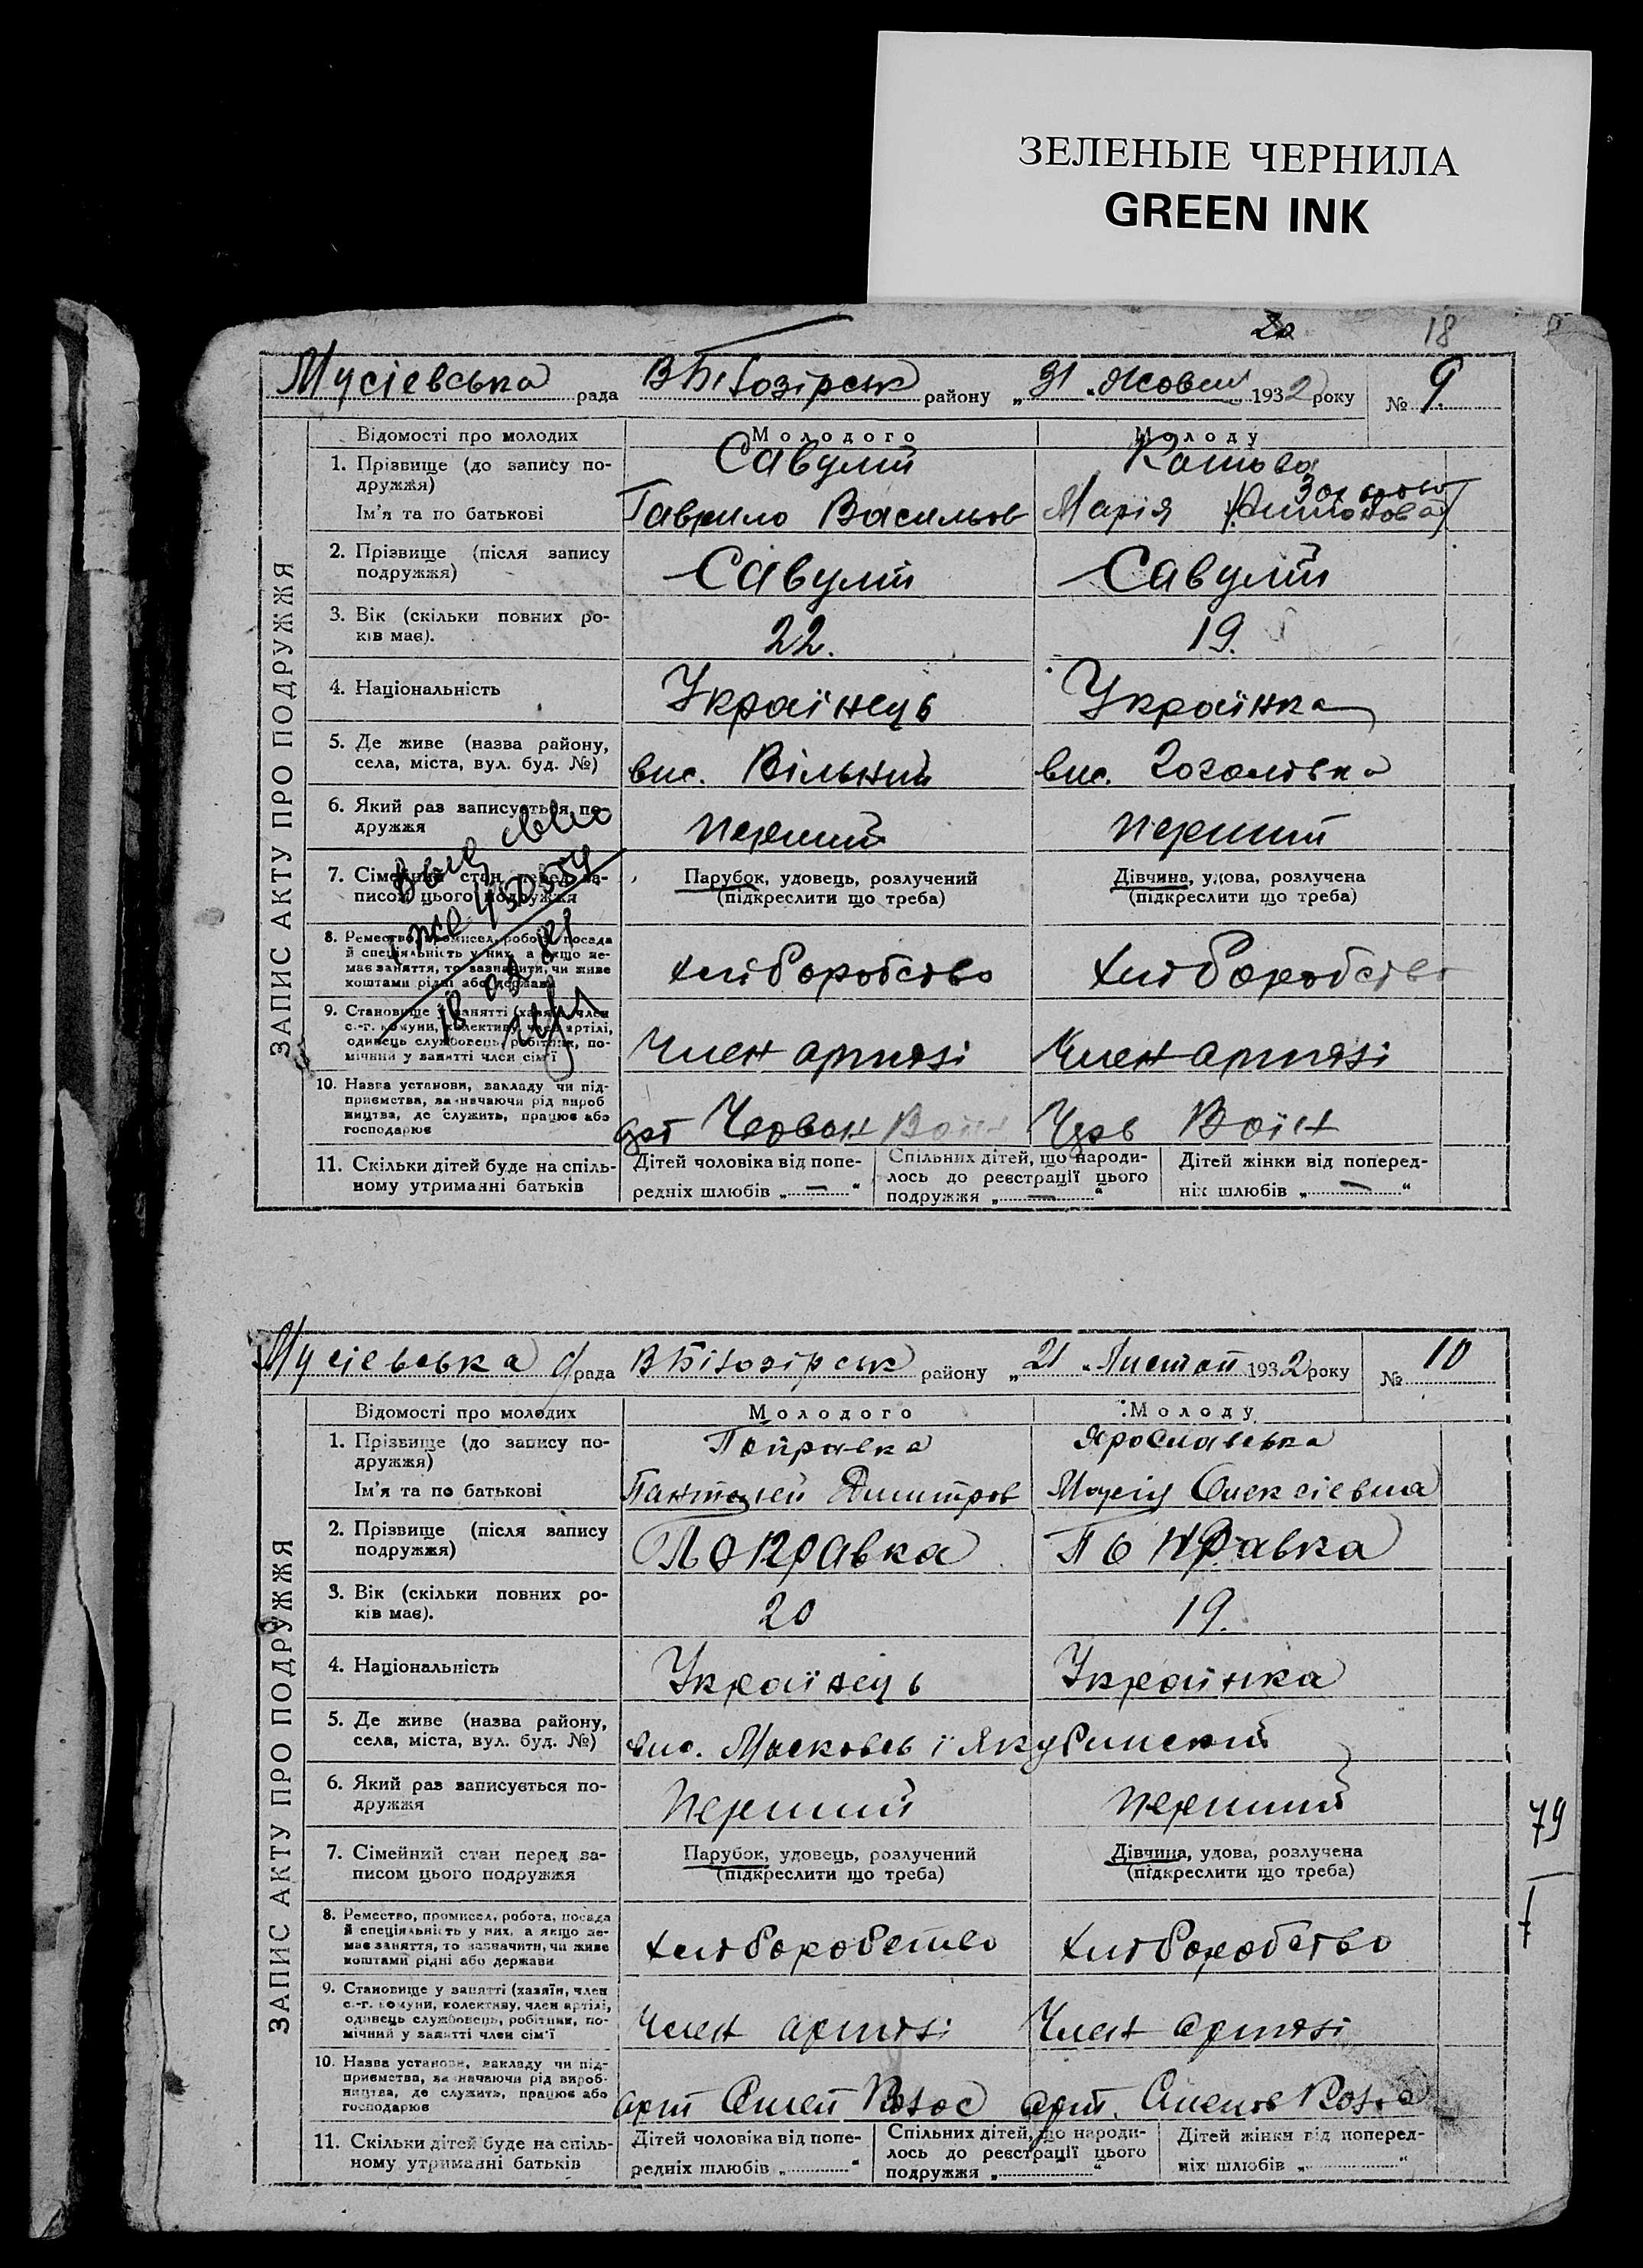 ЗЕЛЕНЫЕ ЧЕРНИЛА
GREEN INK
18
Мусієвська рада ВБілозірськ району „31 " Жовтн 1932 року № 9
ЗАПИС АКТУ ПРО ПОДРУЖЖЯ
Відомості про молодих Молодого Молоду
1. Прізвище (до запису подружжя) Савулій
Ім'я та по батькові Гаврило Васильов Марія
2. Прізвище (після запису подружжя) Савулій Савулій
3. Вік (скільки повних років має). 22. 19.
4. Національність Українець Українка
5. Де живе (назва району, села, міста, вул. буд. №) вис. Вільний вис. Гоголівка
6. Який раз записується подружжя перший перший
7. Сімейний стан перед записом цього подружжя Парубок, удовець, розлучений Дівчина, удова, розлучена
(підкреслити що треба) (підкреслити що треба)
8. Ремество, промисел, робота, посада й спеціяльність у них, а якщо немає заняття, то зазначити, чи живе коштами рідні або держави хліборобство хліборобство
9. Становище у занятті (хазяїн, член с.-г. комуни, колективу, член артілі, одинець службовець, робітник, помічний у занятті член сім'ї Член артілі Член артілі
10. Назва установи, закладу чи підприємства, зазначаючи рід виробництва, де служить, працює або господарює Червон Воїн Черв Воїн
11. Скільки дітей буде на спільному утриманні батьків Дітей чоловіка від попередніх шлюбів „—" Спільних дітей, що народилось до реєстрації цього подружжя „—" Дітей жінки від попередніх шлюбів „—"
Мусієвська с/рада ВБілозірськ району „21 " Листоп 1932 року № 10
ЗАПИС АКТУ ПРО ПОДРУЖЖЯ
Відомості про молодих Молодого Молоду
1. Прізвище (до запису подружжя) Поправка Ярославська
Ім'я та по батькові Пантелей Дмитров Марія Олексіевна
2. Прізвище (після запису подружжя) Поправка Поправка
3. Вік (скільки повних років має). 20 19.
4. Національність Українець Українка
5. Де живе (назва району, села, міста, вул. буд. №) вис.
6. Який раз записується подружжя перший перший
7. Сімейний стан перед записом цього подружжя Парубок, удовець, розлучений Дівчина, удова, розлучена
(підкреслити що треба) (підкреслити що треба)
8. Ремество, промисел, робота, посада й спеціяльність у них, а якщо немає заняття, то зазначити, чи живе коштами рідні або держави хліборобство хліборобство
9. Становище у занятті (хазяїн, член с.-г. комуни, колективу, член артілі, одинець службовець, робітник, помічний у занятті член сім'ї Член артілі Член артілі
10. Назва установи, закладу чи підприємства, зазначаючи рід виробництва, де служить, працює або господарює арт арт.
11. Скільки дітей буде на спільному утриманні батьків Дітей чоловіка від попередніх шлюбів „ " Спільних дітей, що народилось до реєстрації цього подружжя „ " Дітей жінки від попередніх шлюбів „ "
79